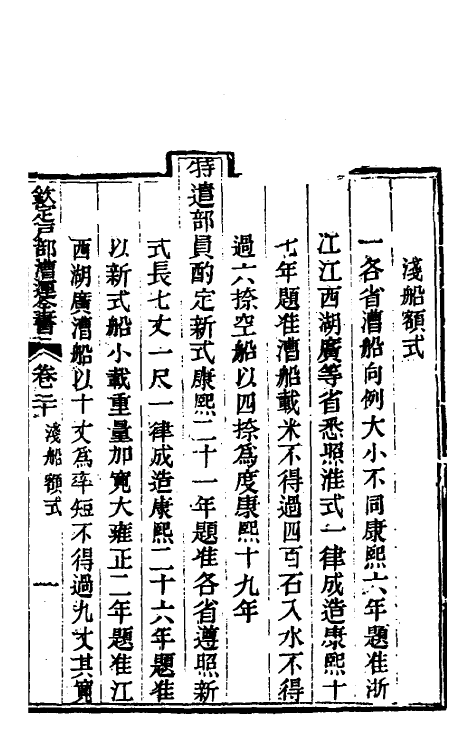 淺船額式
一各省漕船向例大小不同康熙六年題准浙
江江西湖廣等省悉照淮式一律成造康熙十
七年題准漕船載米不得過四百石入水不得
過六捺空船以四捺為度康熙十九年
特遣部員酌定新式康熙二十一年題准各省遵照新
式長七丈一尺一律成造康熙二十六年題准
以新式船小載重量加寬大雍正二年題准江
西湖廣漕船以十丈為率短不得過九丈其寬
欽定戶部漕運全書 卷二十 淺船額式 一